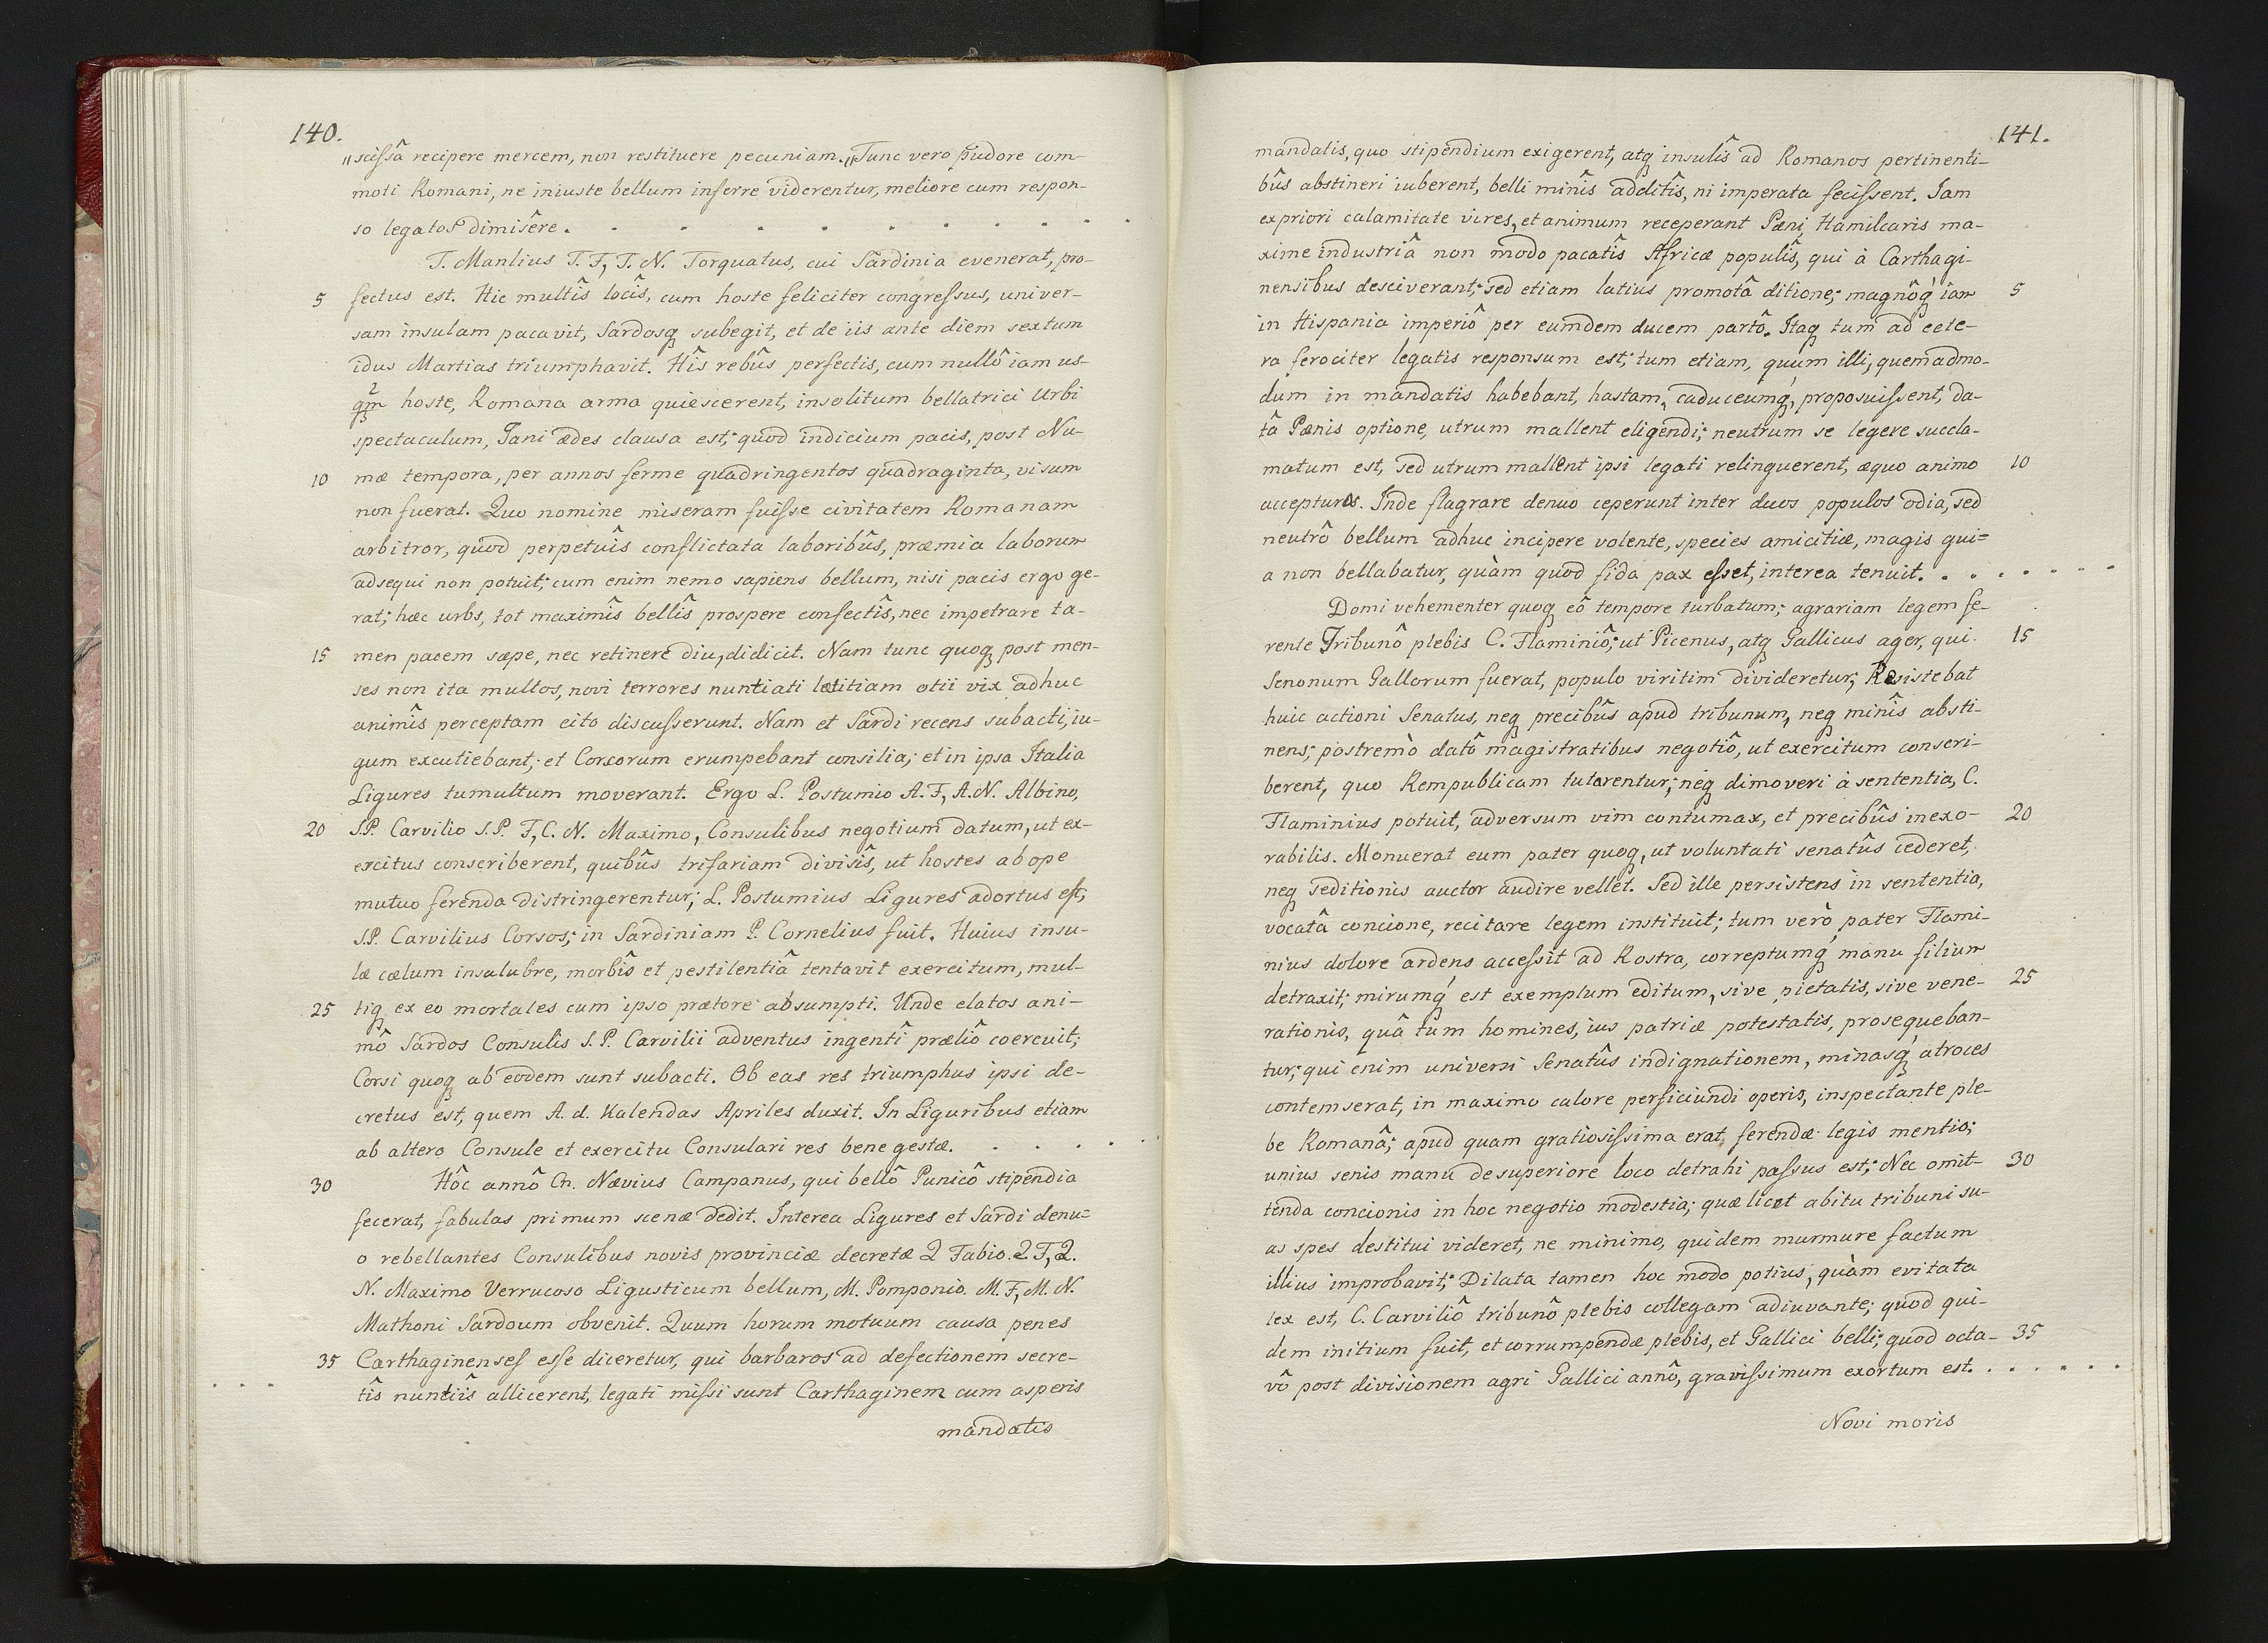 140.
„scißâ recipere mercem, non restituere pecuniam.„ Tunc vero pudore com-
moti Romani, ne iniuste bellum inferre viderentur, meliore cum respon-
so legatos dimisêre. . . . . . . . . .
T. Manlius T. F, T. N. Torquatus, cui Sardinia evenerat, pro-
5 fectus est. Hic multîs locîs, cum hoste feliciter congreßus, univer-
sam insulam pacavit, Sardosq subegit, et de iis ante diem sextum
idus Martias triumphavit. Hîs rebûs perfectis, cum nullô iam us-
qm hoste, Romana arma quiescerent, insolitum bellatrici Urbi
spectaculum, Jani ædes clausa est; quod indicium pacis, post Nu-
10 mæ tempora, per annos ferme quadringentos quadraginta, visum
non fuerat. Quo nomine miseram fuiße civitatem Romanam
arbitror, quod perpetuîs conflictata laboribûs, præmia laborum
adsequi non potuit; cum enim nemo sapiens bellum, nisi pacis ergo ge-
rat; hæc urbs, tot maximîs bellîs prospere confectîs, nec impetrare ta-
15 men pacem sæpe, nec retinere diu, didicit. Nam tunc quoq post men-
ses non ita multos, novi terrores nuntiati lætitiam otii vix adhuc
animîs perceptam cito discußerunt. Nam et Sardi recens subacti, iu-
gum excutiebant; et Corsorum erumpebant consilia; et in ipsa Italia
Ligures tumultum moverant. Ergo L. Postumio A. F, A. N. Albino,
20 S.P. Carvilio S.P. F, C. N. Maximo, Consulibus negotium datum, ut ex-
ercitus conscriberent, quibûs trifariam divisîs, ut hostes ab ope
mutuo ferenda distringerentur; L. Postumius Ligures adortus est;
S.P. Carvilius Corsos; in Sardiniam P. Cornelius fuit. Huius insu-
læ cælum insalubre, morbîs et pestilentiâ tentavit exercitum, mul-
25 tiq ex eo mortales cum ipso prætore absumpti. Unde elatos ani-
mô Sardos Consulis S.P. Carvilii adventus ingentî præliô coercuit;
Corsi quoq ab eodem sunt subacti. Ob eas res triumphus ipsi de-
cretus est, quem A. d. Kalendas Apriles duxit. In Liguribus etiam
ab altero Consule et exercitu Consulari res bene gestæ. . . . . .
30 Hôc annô Cn. Nævius Campanus, qui bellô Punicô stipendia
fecerat, fabulas primum scenæ dedit. Interea Ligures et Sardi denu=
o rebellantes Consulibus novis provinciæ decretæ Q Fabio. Q. F, Q.
N. Maximo Verrucoso Ligusticum bellum, M. Pomponio. M. F, M. N.
Mathoni Sardoum obvenit. Quum horum motuum causa penes
35 Carthaginenses eße diceretur, qui barbaros ad defectionem secre-
. . . tîs nuntiîs allicerent, legati mißi sunt Carthaginem cum asperis
mandatis
141.
mandatis, quo stipendium exigerent, atq insulîs ad Romanos pertinenti-
bûs abstineri iuberent, belli minîs additîs, ni imperata fecißent. Iam
ex priori calamitate vires, et animum receperant Pæni, Hamilcaris ma-
xime industriâ non modo pacatîs Africæ populîs, qui à Carthagi-
nensibus desciverant; sed etiam latius promotâ ditione; magnôq iam 5
in Hispania imperiô per eumdem ducem partô. Itaq tum ad cete-
ra ferociter legatis responsum est; tum etiam, quum illi, quemadmo-
dum in mandatis habebant, hastam, caduceumq, proposuißent, da-
tâ Pænis optione, utrum mallent eligendi; neutrum se legere succla-
matum est, sed utrum mallent ipsi legati relinquerent, æquo animo 10
accepturos. Inde flagrare denuo ceperunt inter duos populos odia, sed
neutrô bellum adhuc incipere volente, species amicitiæ, magis qui=
a non bellabatur, quàm quod fida pax eßet, interea tenuit. . . . . . . .
Domi vehementer quoq eô tempore turbatum; agrariam legem fe-
rente Tribunô plebis C. Flaminiô; ut Picenus, atq Gallicus ager, qui 15
Senonum Gallorum fuerat, populo viritim divideretur; Resistebat
huic actioni Senatus, neq precibûs apud tribunum, neq minîs absti-
nens; postremò datô magistratibus negotiô, ut exercitum conscri-
berent, quo Rempublicam tutarentur; neq dimoveri à sententia, C.
Flaminius potuit, adversum vim contumax, et precibûs inexo- 20
rabilis. Monuerat eum pater quoq, ut voluntati senatûs cederet,
neq seditionis auctor audire vellet. Sed ille persistens in sententia,
vocatâ concione, recitare legem instituit; tum verò pater Flami-
nius dolore ardens acceßit ad Rostra, correptumq manu filium
detraxit; mirumq est exemplum editum, sive pietatis, sive vene- 25
rationis, quâ tum homines, ius patriæ potestatis, prosequeban-
tur; qui enim universi Senatûs indignationem, minasq atroces
contemserat, in maximo calore perficiundi operis, inspectante ple-
be Romanâ; apud quam gratiosißima erat ferendæ legis mentio;
unius senis manu de superiore loco detrahi paßus est; Nec omit- 30
tenda concionis in hoc negotio modestia; quæ licet abitu tribuni su-
as spes destitui videret, ne minimo, quidem murmure factum
illius improbavit; Dilata tamen hoc modo potius, quàm evitata
lex est, C. Carviliô tribunô plebis collegam adiuvante; quod qui-
dem initium fuit, et corrumpendæ plebis, et Gallici belli; quod octa- 35
vô post divisionem agri Gallici annô, gravißimum exortum est. . . . . . .
Novi moris